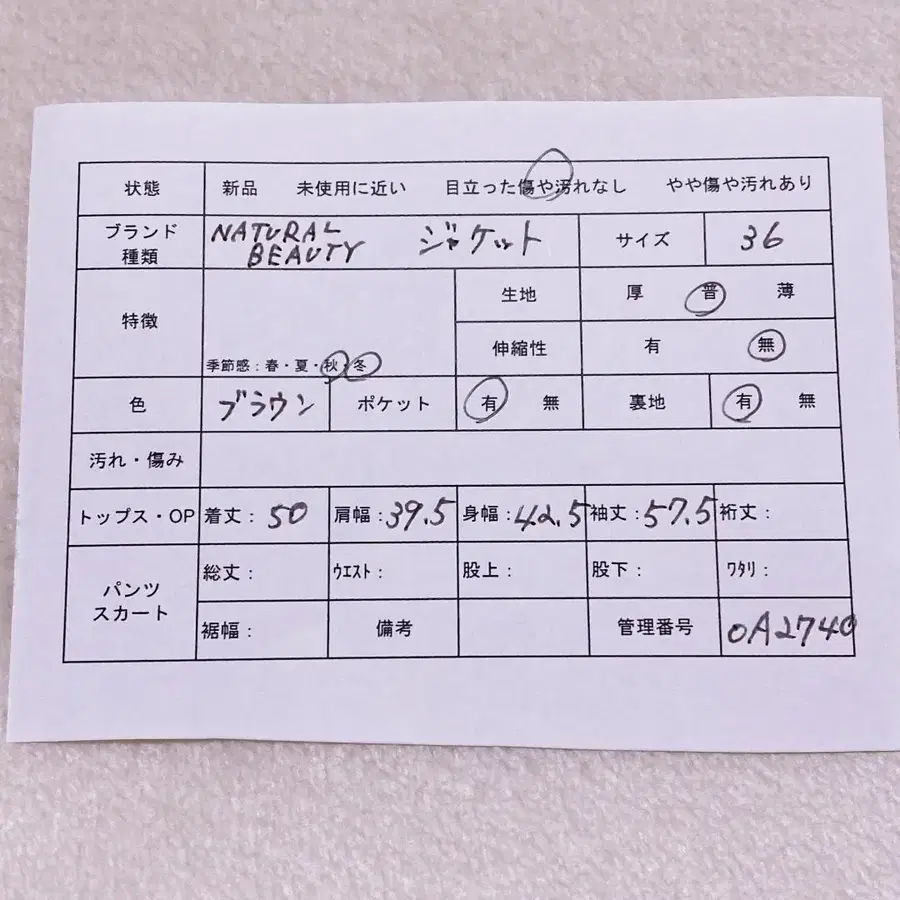 状態 新品 未使用に近い 目立った傷や汚れなし やや傷や汚れあり
ブランド 種類 NATURAL BEAUTY ジャケット サイズ 36
特徴 季節感：春・夏・秋・冬
生地 厚 普 薄
伸縮性 有 無
色 ブラウン ポケット 有 無 裏地 有 無
汚れ・傷み
トップス・OP 着丈：50 肩幅：39.5 身幅：42.5 袖丈：57.5 裄丈：
パンツ スカート 総丈： ｳｴｽﾄ： 股上： 股下： ﾜﾀﾘ：
裾幅： 備考 管理番号 OA2740